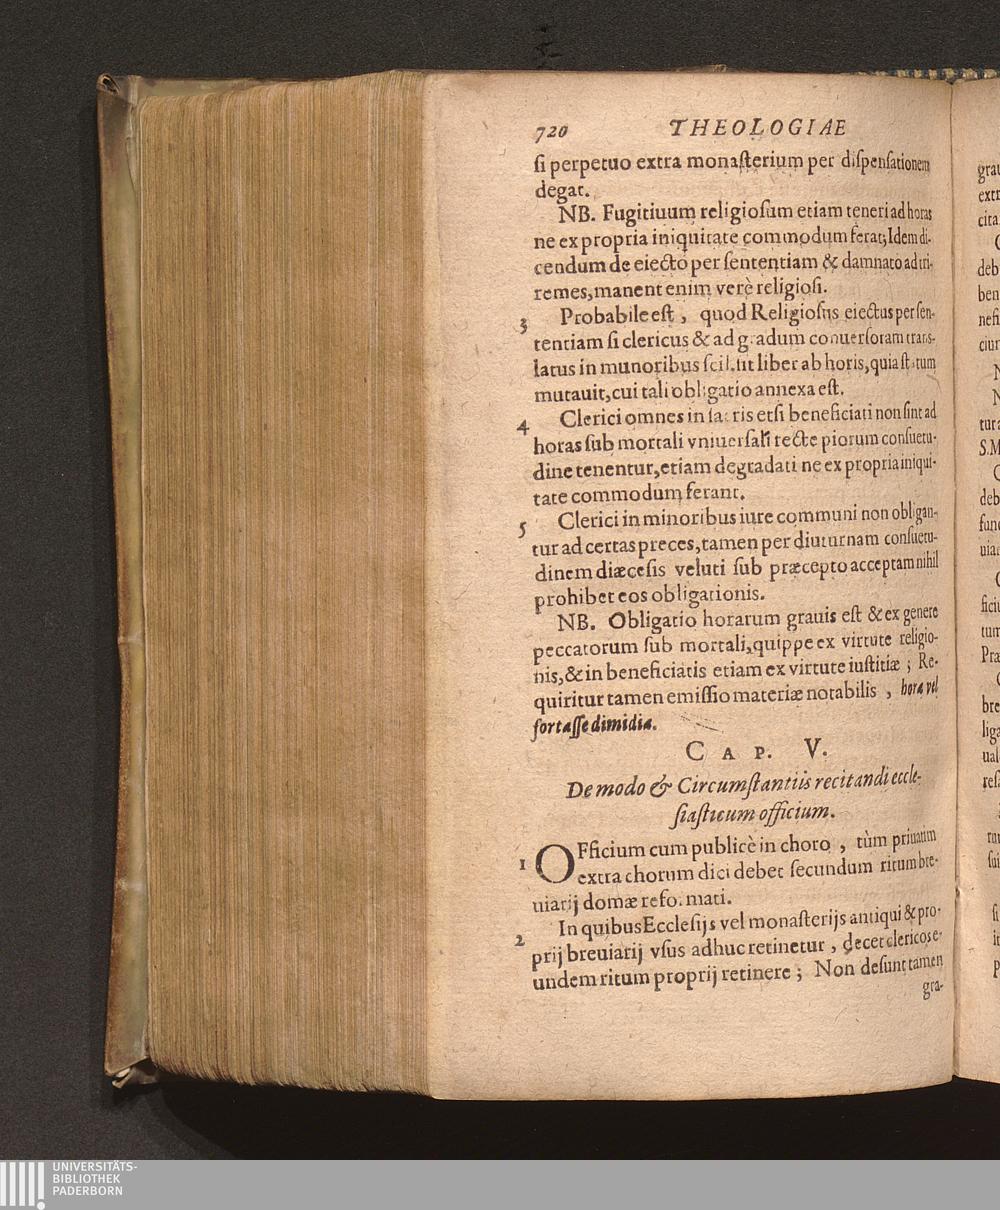 720 THEOLOGIAE
ſi perpetuo extra monaſterium per diſpenſationem
degat.
NB. Fugitiuum religioſum etiam teneri ad horas
ne ex propria iniquitate commodum ferat; Idem di-
cendum de eiecto per ſententiam & damnato ad tri-
remes, manent enim verè religioſi.
3 Probabile eſt, quod Religioſus eiectus per ſen-
tentiam ſi clericus & ad gradum conuerſorum trans-
latus in munoribus ſcil. ſit liber ab horis, quia ſtatum
mutauit, cui tali obligatio annexa eſt.
4 Clerici omnes in ſacris etſi beneficiati non ſint ad
horas ſub mortali vniuerſali recte piorum conſuetu-
dine tenentur, etiam degradati ne ex propria iniqui-
tate commodum ferant.
5 Clerici in minoribus iure communi non obligan-
tur ad certas preces, tamen per diuturnam conſuetu-
dinem diæceſis veluti ſub præcepto acceptam nihil
prohibet eos obligationis.
NB. Obligatio horarum grauis eſt & ex genere
peccatorum ſub mortali, quippe ex virtute religio-
nis, & in beneficiatis etiam ex virtute iuſtitiæ; Re-
quiritur tamen emiſſio materiæ notabilis, hora vel
fortaſſe dimidia.
CAP. V.
De modo & Circumſtantiis recitandi eccle-
ſiaſticum officium.
1 OFficium cum publicè in choro, tùm priuatim
extra chorum dici debet ſecundum ritum bre-
uiarij domæ refo.mati.
2 In quibus Eccleſijs vel monaſterijs antiqui & pro-
prij breuiarij vſus adhuc retinetur, decet clericos e-
undem ritum proprij retinere; Non deſunt tamen
gra-
UNIVERSITÄTS-
BIBLIOTHEK
PADERBORN